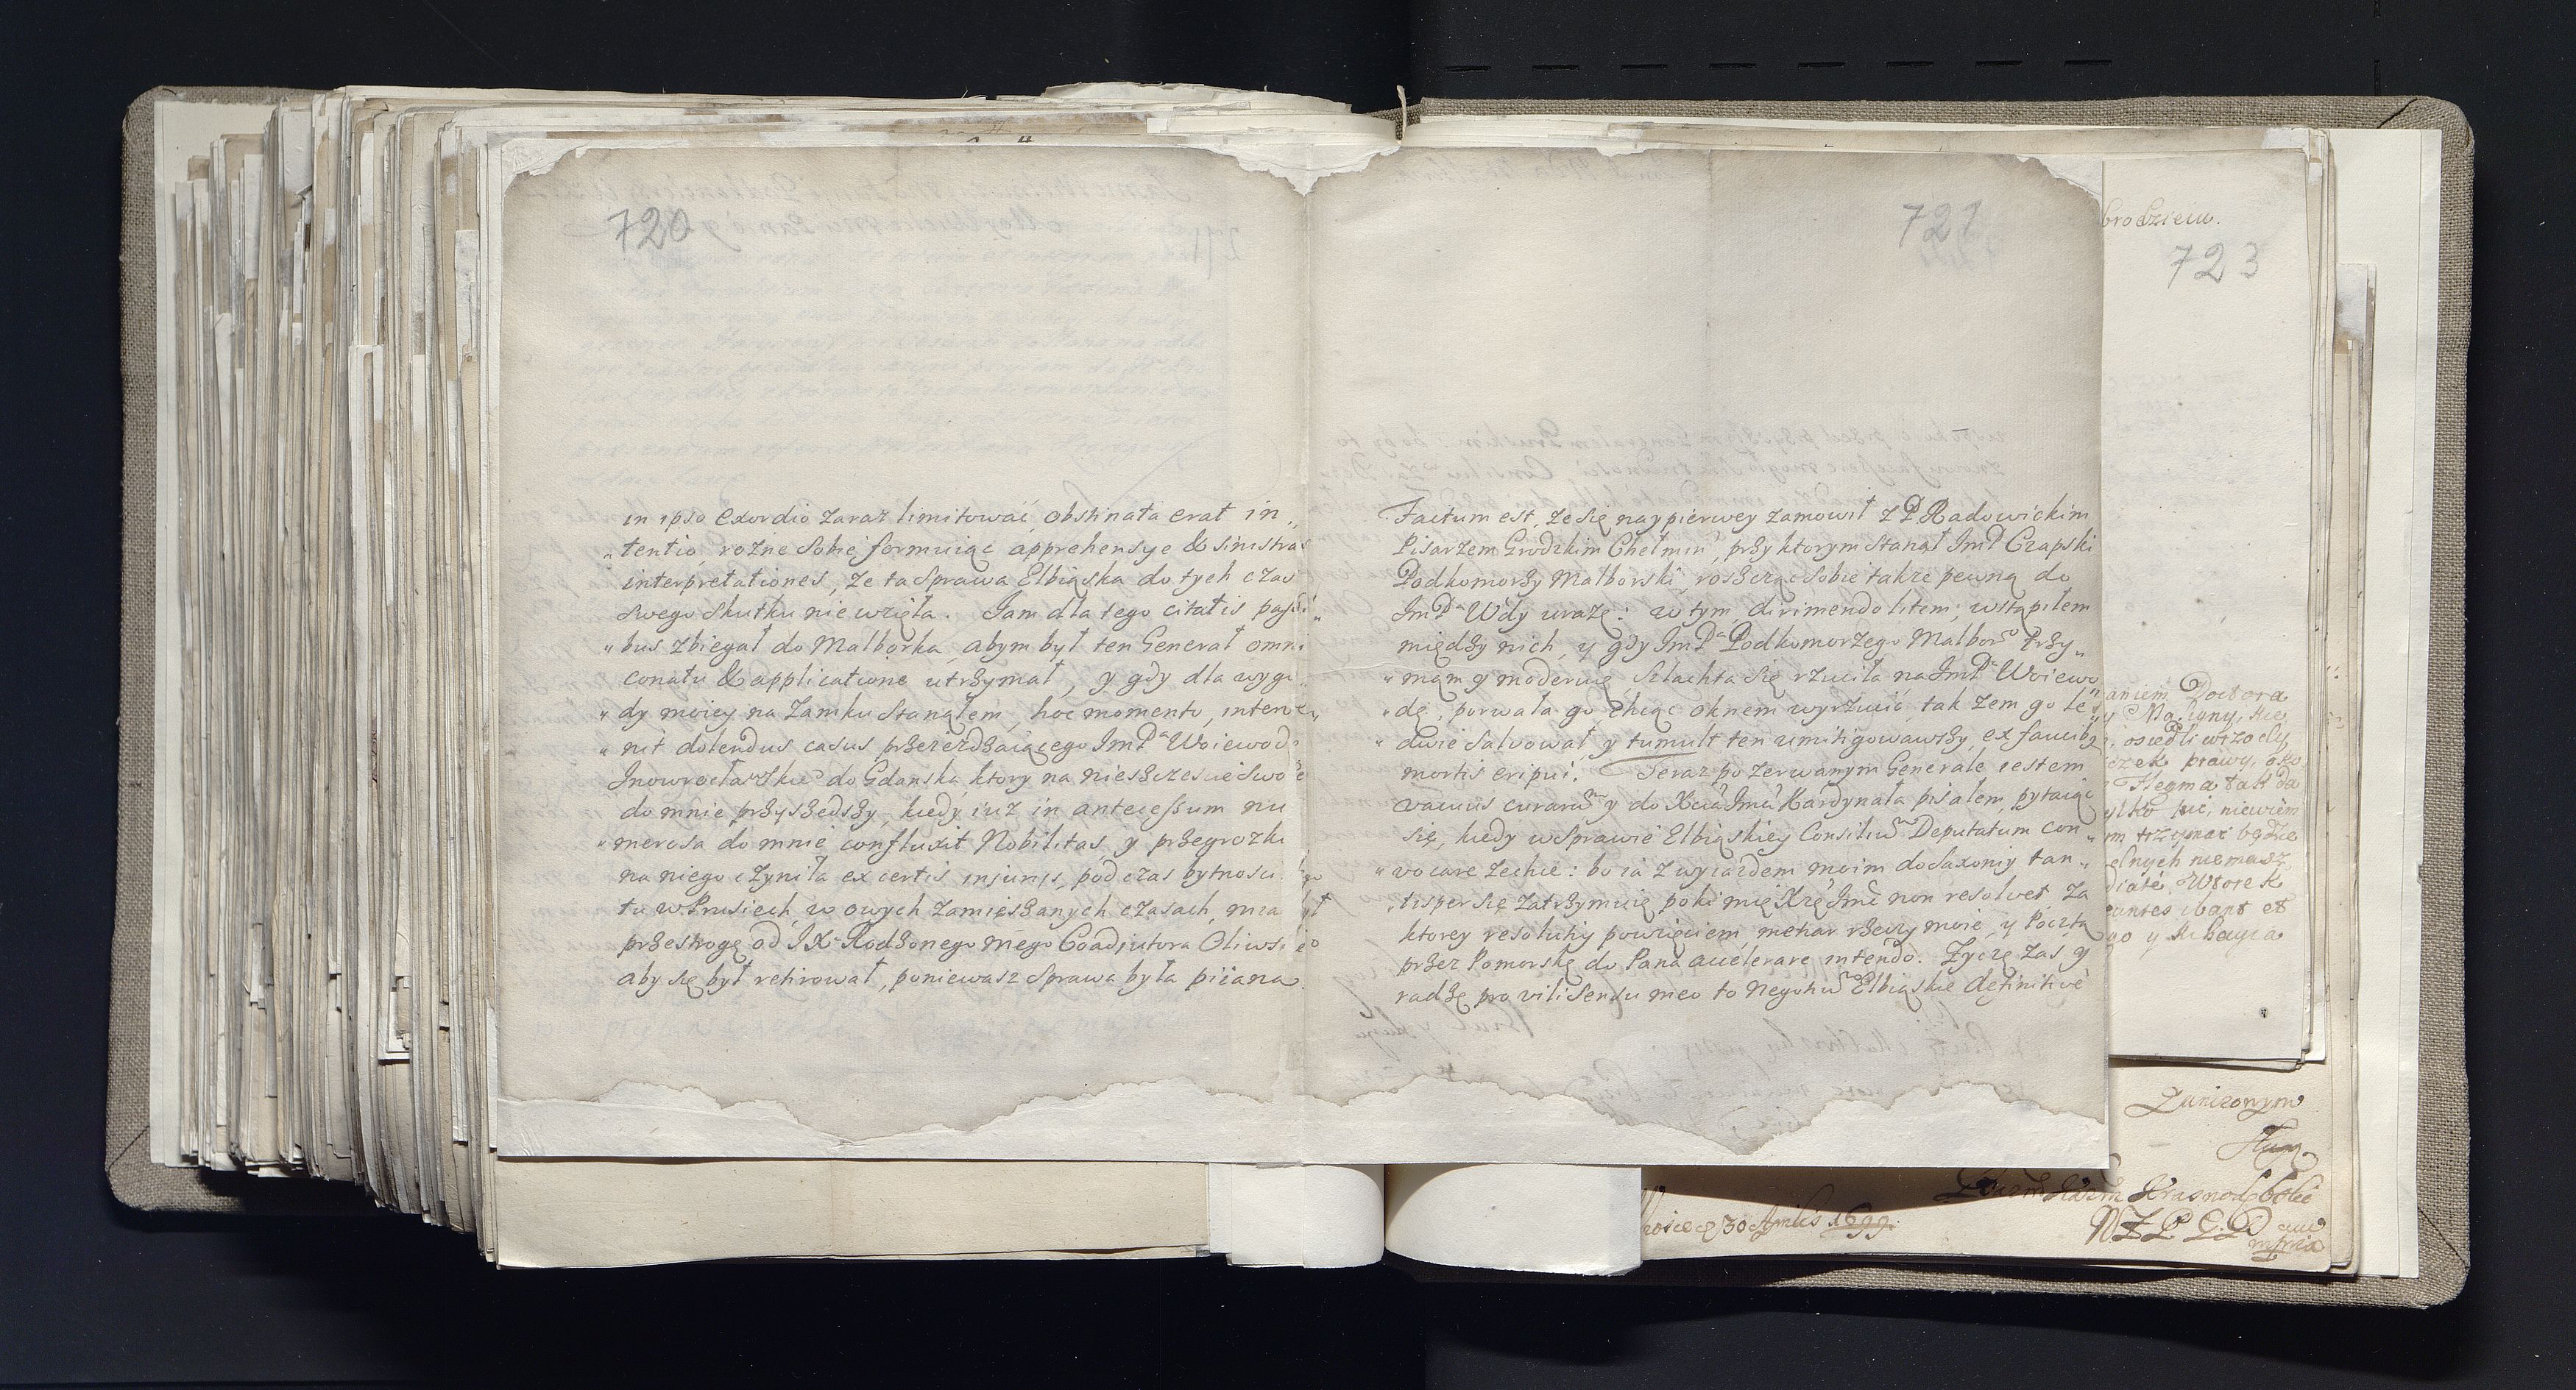 720
in ipso Exordio zaraz limitować, obstinata erat in„
„tentio, rożne sobie formuiąc apprehensye & sinistras
interpretationes, że ta Sprawa Elbiąska do tych czas
swego skutku nie wzięła. Jam dla tego citatis passi„
„bus zbiegał do Malborka, abym był ten Generał omni
conatu & applicatione utrzymał, y gdy dla wygo„
„dy moiey na Zamku stanąłem, hoc momento, interve„
„nit dolendus casus przeiezdzaiącego ImP Woiewod
Inowrocławskie do Gdanska, ktory na nieszczescie swoie
do mnie przyszedszy, kiedy iuż in antecessum nu
„merosa do mnie confluxit Nobilitas, y przegrozki
na niego czyniła ex certis injurys, pod czas bytnosci
tu w Prusiech, w owych zamięszanych czasach, mia
przestrogę od JX Rodzonego mego Coadjutora Oliws
aby się był retirował, poniewasz sprawa była piiana
721
Factum est, że się naypierwey zamowił z P Radowickim
Pisarzem Grodzkim Chełmin, przy ktorym stanął ImP Czapski
Podkomorzy Malborski, roszcząc sobie także pewną do
ImP Wdy urazę: w tym, dirimendo litem, wstąpiłem
między nich, y gdy ImP Podkomorzego Malbor trzy„
„mam y moderuię, Szlachta się rzuciła na ImP Woiewo
„dę, porwała go, chcąc oknem wyrzucić, tak żem go le„
„dwie salvował, y tumult ten umitigowawszy, ex faucibq
mortis eripui. Teraz po zerwanym Generale iestem
vacuus curarũ y do Xcia Jmci Kardynała pisałem, pytaiąc
się, kiedy w Sprawie Elbiąskiey Consiliũ Deputatum con„
„vocare zechce: bo ia z wyiazdem moim do Saxoniy tan„
„tisper się zatrzymuię, poki mię Xżę Jmć non resolvet, za
ktorey resolutiy powzięciem, mehar rzeczy moie, y Pocztą
przez Pomorskę do Pana accelerare intendo. Życzę zas y
radzę pro vili sensu meo to Negotiũ Elbiąskie definitive
brodzieiu.
723
aniem Doctora
osiedli wrzody
prawy, oko
Flegma tak da
niewiem
trzymać będzie
niemasz
Wtorek
ibant et
Zunizonym
Sługą
30 Aprilis 1699.